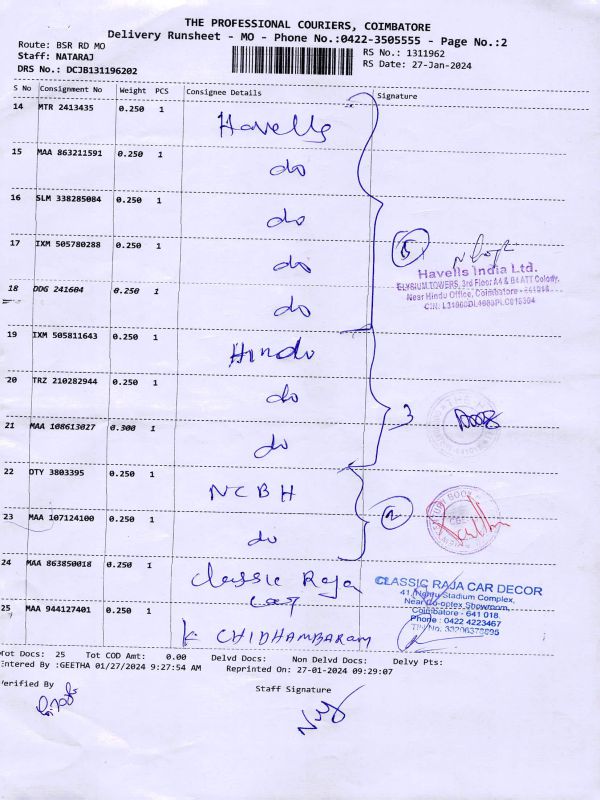 THE PROFESSIONAL COURIERS, COIMBATORE
Delivery Runsheet - MO - Phone No.:0422-3505555 - Page No.:2
Route: BSR RD MO
RS No.: 1311962
Staff: NATARAJ
RS Date: 27-Jan-2024
DRS No.: DCJB131196202
S No Consignment No Weight PCS Consignee Details Signature
14 MTR 2413435 0.250 1 Havells
15 MAA 863211591 0.250 1 do
16 SLM 338285084 0.250 1 do
17 IXM 505780288 0.250 1 do
5
Havells India Ltd.
ELYSIUM TOWERS, 3rd Floor A4 & B4 ATT Colony,
Near Hindu Office, Coimbatore - 641018
18 DDG 241604 0.250 1 do
19 IXM 505811643 0.250 1 Hindu
20 TRZ 210282944 0.250 1 do
3
21 MAA 108613027 0.300 1 do
22 DTY 3803395 0.250 1 NCBH
2
23 MAA 107124100 0.250 1 do
24 MAA 863850018 0.250 1 Classic Raja
CLASSIC RAJA CAR DECOR
41, Nehru Stadium Complex,
Near Co-oplex Showroom,
Coimbatore - 641 018.
Phone : 0422 4223467
25 MAA 944127401 0.250 1 K CHIDHAMBARAM
Tot Docs: 25 Tot COD Amt: 0.00 Delvd Docs: Non Delvd Docs: Delvy Pts:
Entered By :GEETHA 01/27/2024 9:27:54 AM Reprinted On: 27-01-2024 09:29:07
Verified By
Staff Signature